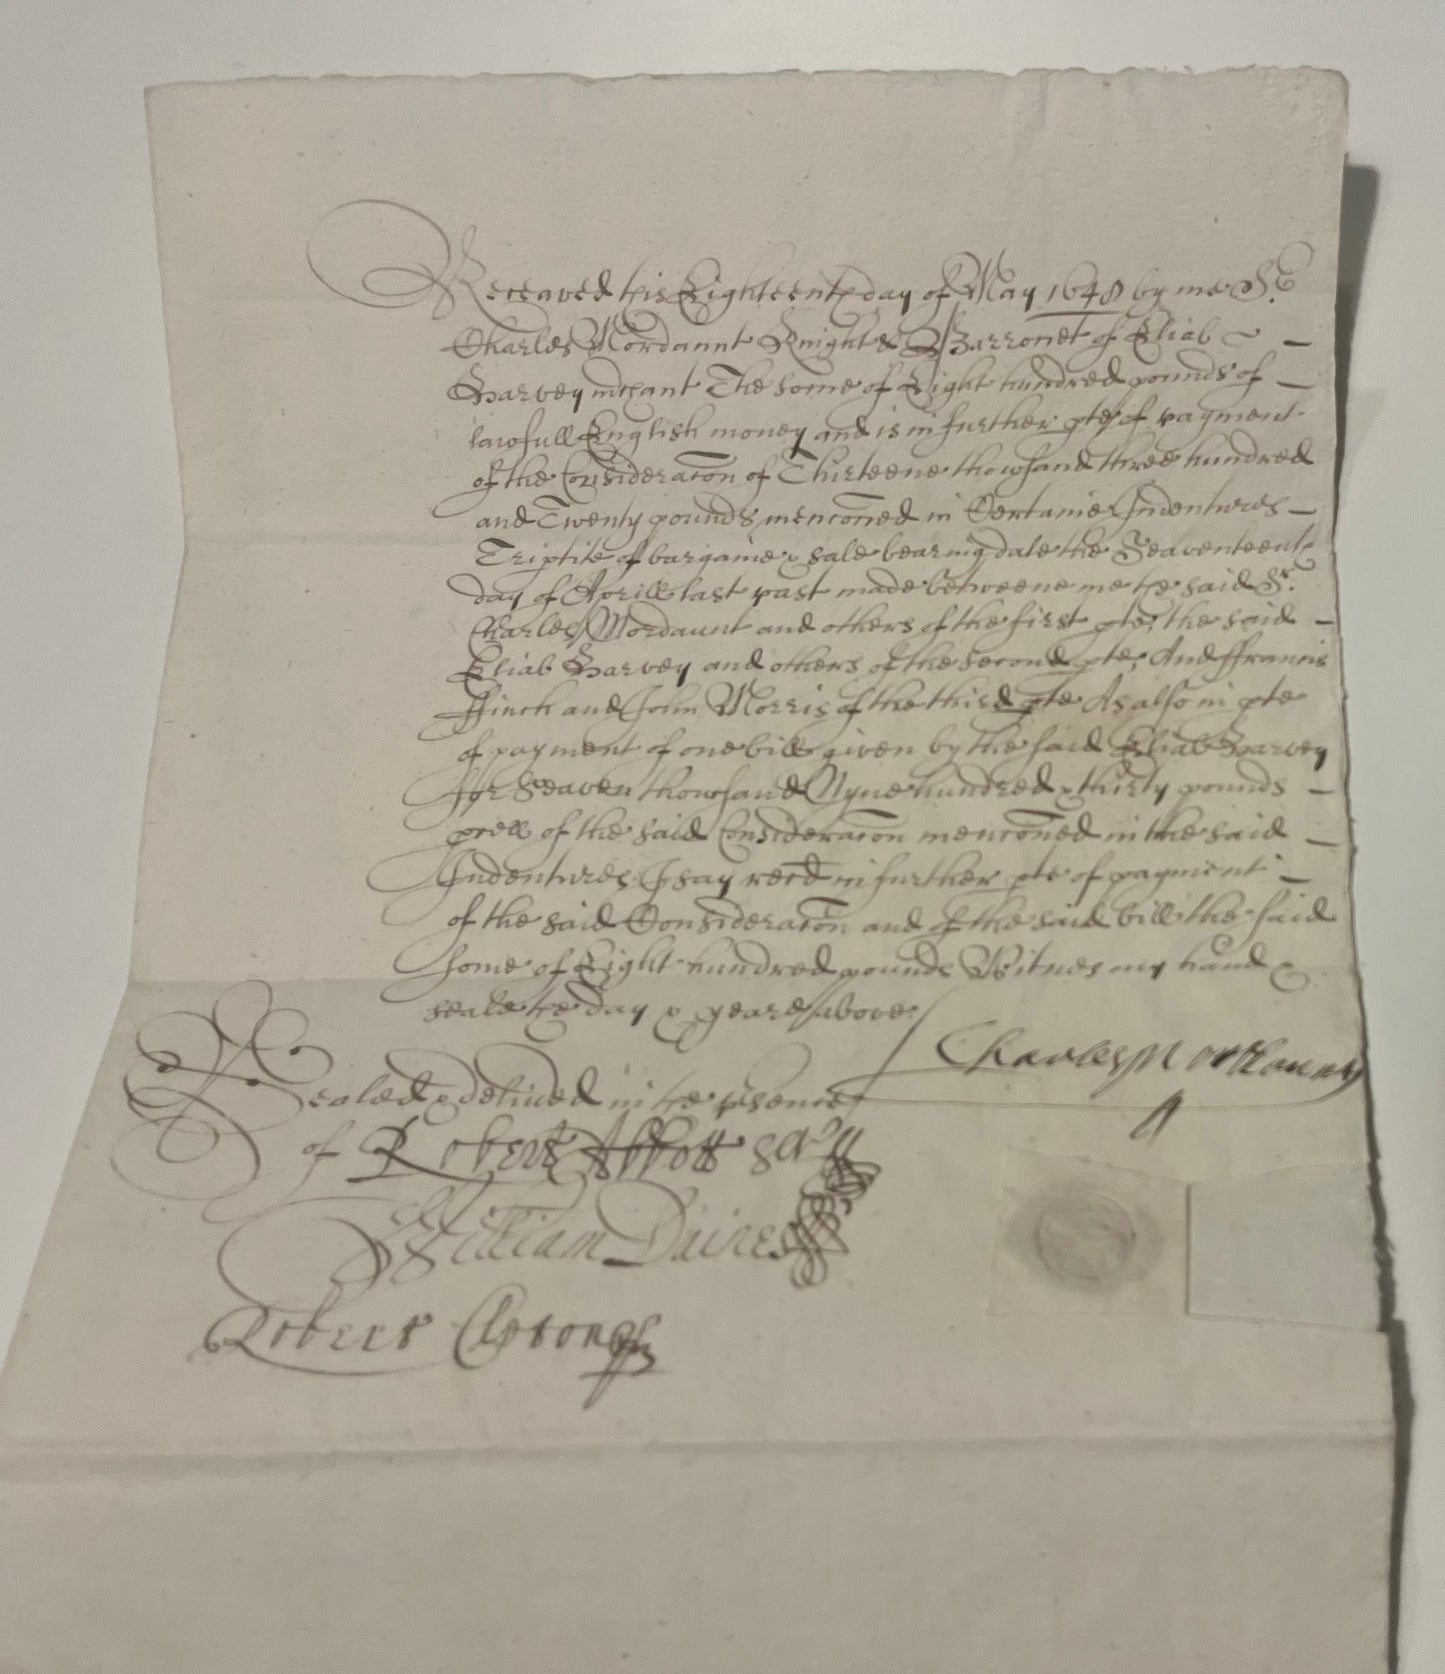 Receaved this Eighteenth day of May 1648 by me Sr
Charles Mordaunt Knight & Barronet of Eliab
Harvey mchant The some of Eight hundred pounds of
lawfull English money and is in further pte of payment
of the Consideracon of Thirteene thowsand three hundred
and Twenty pounds menconed in Certaine Indentures
Triptite of bargaine & sale bearing date the Seaventeenth
day of Aprill last past made betweene me the said Sr.
Charles Mordaunt and others of the first pte, the said
Eliab Harvey and others of the second pte, And ffrancis
ffinch and John Morris of the third pte As also in pte
of payment of one bill given by the said Eliab Harvey
for Seaven thowsand Nyne hundred & thirty pounds
pcell of the said Consideracon menconed in the said
Indentures I say recd in further pte of payment
of the said Consideracon and of the said bill the said
some of Eight hundred pounds Witnes my hand &
seale the day & yeare above
Charles Mordaunt
Sealed & delived in the psence
of Robert Abbott Scr
William
Robert Clayton